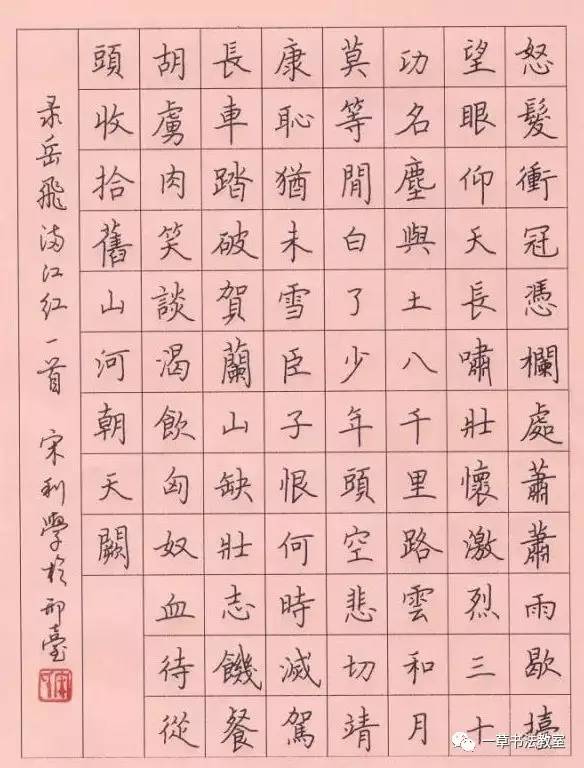 怒髮衝冠憑欄處蕭蕭雨歇擡
望眼仰天長嘯壯懷激烈三十
功名塵與土八千里路雲和月
莫等閒白了少年頭空悲切靖
康恥猶未雪臣子恨何時滅駕
長車踏破賀蘭山缺壯志饑餐
胡虜肉笑談渴飲匈奴血待從
頭收拾舊山河朝天闕
录岳飛滿江红一首 宋利學於邢臺
一草书法教室